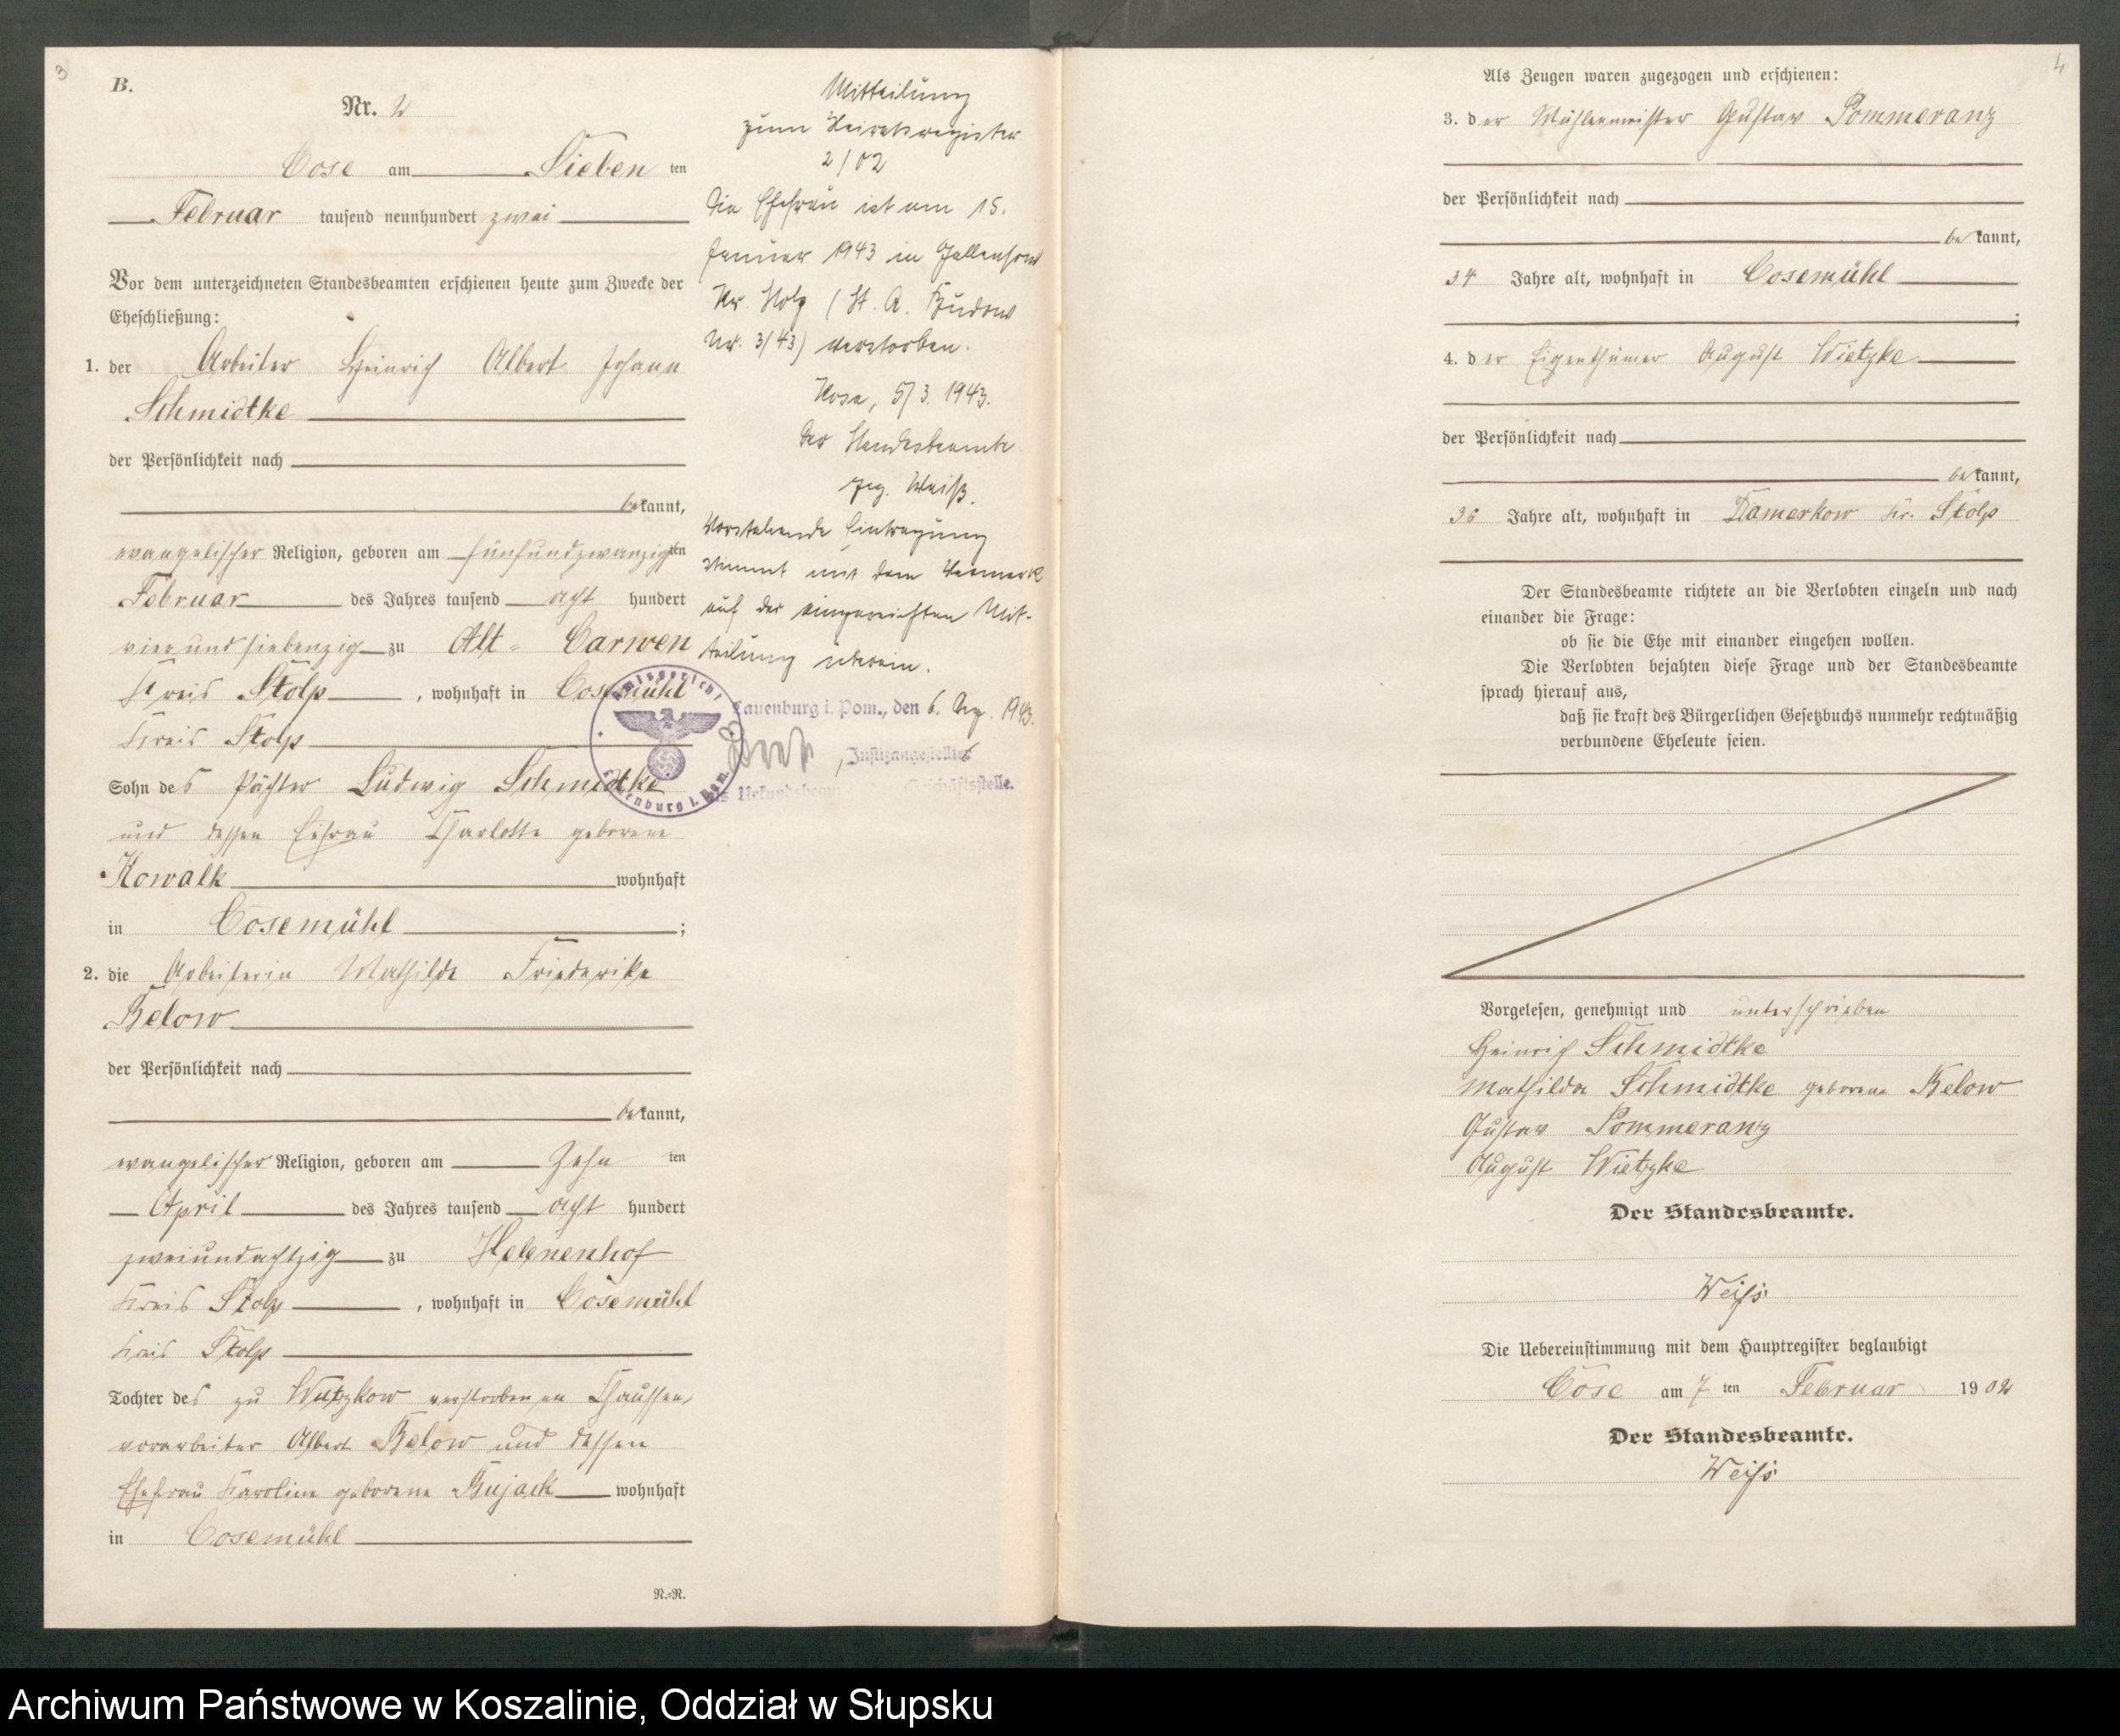 3
B.
Nr. 2
Cose am Sieben ten
Februar tausend neunhundert zwei
Vor dem unterzeichneten Standesbeamten erschienen heute zum Zwecke der
Eheschließung:
1. der Arbeiter Heinrich Albert Johann
Schmidtke
der Persönlichkeit nach
bekannt,
evangelischer Religion, geboren am fünfundzwanzigsten
Februar des Jahres tausend acht hundert
vierundsiebenzig zu Alt-Carwen
Kreis Stolp, wohnhaft in Cosemühl
Kreis Stolp
Sohn des Pächter Ludwig Schmidtke
und dessen Ehefrau Charlotte geborene
Kowalk wohnhaft
in Cosemühl;
2. die Arbeiterin Mathilde Friederike
Below
der Persönlichkeit nach
bekannt,
evangelischer Religion, geboren am Zehn ten
April des Jahres tausend acht hundert
zweiundachtzig zu Helenenhof
Kreis Stolp, wohnhaft in Cosemühl
Kreis Stolp
Tochter des zu Wutzkow verstorbenen Chaussee
vorarbeiter Albert Below und dessen
Ehefrau Karoline geborene Bujack wohnhaft
in Cosemühl
N.-R.
Mitteilung
zum Heiratsregister
2/02
Die Ehefrau ist am 15.
Januar 1943 in
Kr. Stolp (St. A. Budow
Nr. 3/43) verstorben.
Kose, 5/3. 1943.
Der Standesbeamte
gez. Weiß.
Vorstehende Eintragung
stimmt mit dem Vermerk
auf der eingereichten Mit-
teilung überein.
Amtsgericht
Lauenburg i. Pom.
Lauenburg i. Pom., den 6. Aug. 1943.
, Justizangestellter
als Urkundsbeam Geschäftsstelle.
4
Als Zeugen waren zugezogen und erschienen:
3. der Mühlenmeister Gustav Pommeranz
der Persönlichkeit nach
bekannt,
34 Jahre alt, wohnhaft in Cosemühl
;
4. der Eigenthümer August Wietzke
der Persönlichkeit nach
bekannt,
36 Jahre alt, wohnhaft in Damerkow Kr. Stolp
Der Standesbeamte richtete an die Verlobten einzeln und nach
einander die Frage:
ob sie die Ehe mit einander eingehen wollen.
Die Verlobten bejahten diese Frage und der Standesbeamte
sprach hierauf aus,
daß sie kraft des Bürgerlichen Gesetzbuchs nunmehr rechtmäßig
verbundene Eheleute seien.
Vorgelesen, genehmigt und unterschrieben
Heinrich Schmidtke
Mathilda Schmidtke geborene Below
Gustav Pommeranz
August Wietzke
Der Standesbeamte.
Weiß
Die Uebereinstimmung mit dem Hauptregister beglaubigt
Cose am 7 ten Februar 1902
Der Standesbeamte.
Weiß
Archiwum Państwowe w Koszalinie, Oddział w Słupsku